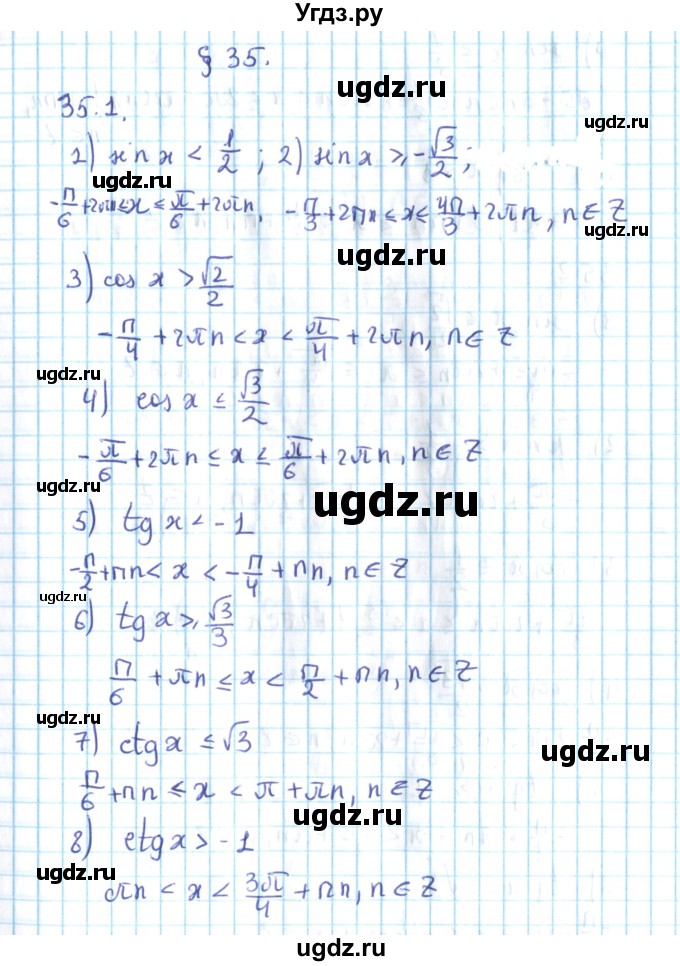 Угдз.ру
§ 35.
ugdz.ru
35.1.
1) sin x < 1/2 ; 2) sin x ⩾ -√3/2;
ugdz.ru
ugdz.ru
-π/6 + 2πn ≤ x ≤ π/6 + 2πn, -π/3 + 2πn ≤ x ≤ 4π/3 + 2πn, n ∈ Z
ugdz.ru
ugdz.ru
3) cos x > √2/2
-π/4 + 2πn < x < π/4 + 2πn, n ∈ Z
ugdz.ru
4) cos x ≤ √3/2
-π/6 + 2πn ≤ x ≤ π/6 + 2πn, n ∈ Z
ugdz.ru
ugdz.ru
5) tg x < -1
-π/2 + πn < x < -π/4 + πn, n ∈ Z
ugdz.ru
6) tg x ⩾ √3/3
π/6 + πn ≤ x < π/2 + πn, n ∈ Z
ugdz.ru
7) ctg x ≤ √3
ugdz.ru
π/6 + πn ≤ x < π + πn, n ∈ Z
ugdz.ru
8) ctg x > -1
ugdz.ru
πn < x < 3π/4 + πn, n ∈ Z
ugdz.ru